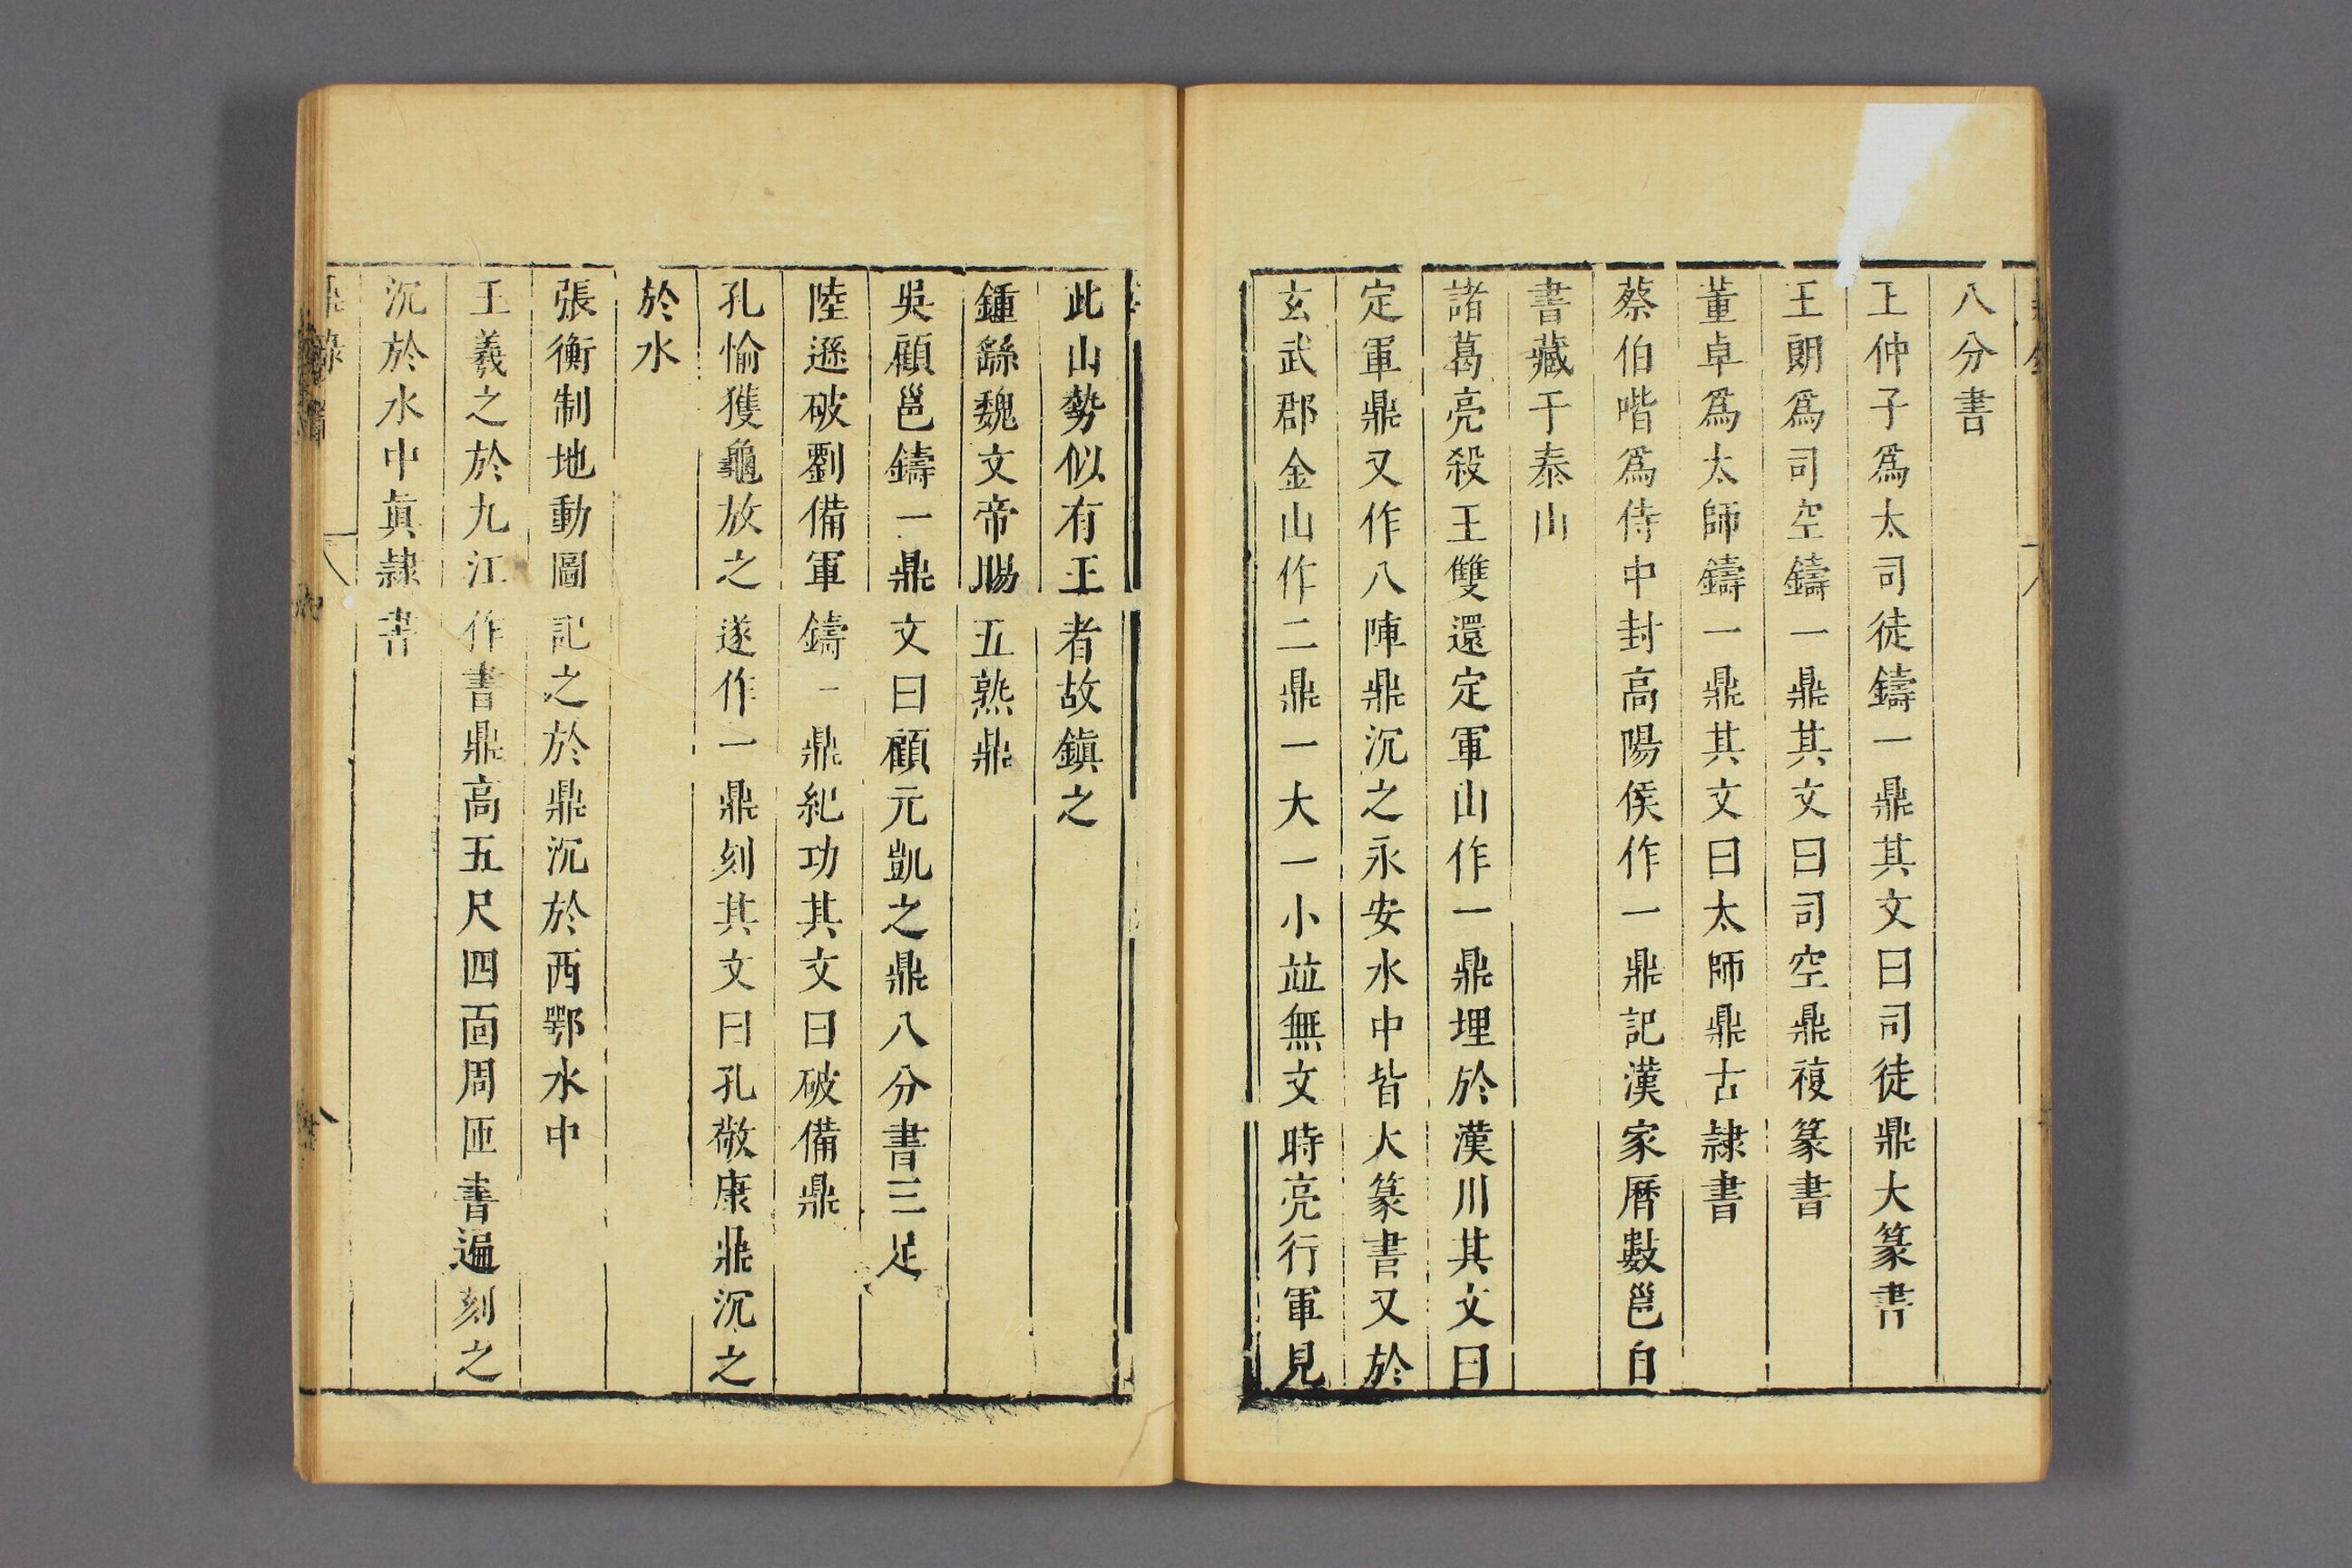 八分書
王仲子爲太司徒鑄一鼎其文曰司徒鼎大篆書
王朗爲司空鑄一鼎其文曰司空鼎複篆書
董卓爲太師鑄一鼎其文曰太師鼎古隷書
蔡伯喈爲侍中封高陽侯作一鼎記漢家曆數邕自
書藏于泰山
諸葛亮殺王雙還定軍山作一鼎埋於漢川其文曰
定軍鼎又作八陣鼎沉之永安水中皆大篆書又於
玄武郡金山作二鼎一大一小並無文時亮行軍見
此山勢似有王者故鎭之
鍾繇魏文帝賜五熟鼎
吳顧邕鑄一鼎文曰顧元凱之鼎八分書三足
陸遜破劉備軍鑄一鼎紀功其文曰破備鼎
孔愉獲龜放之遂作一鼎刻其文曰孔敬康鼎沉之
於水
張衡制地動圖記之於鼎沉於西鄂水中
王羲之於九江作書鼎高五尺四面周匝書遍刻之
沉於水中眞隷書